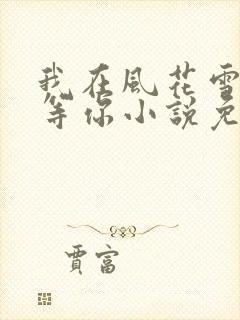 我在風花雪
等你小說免
賈富